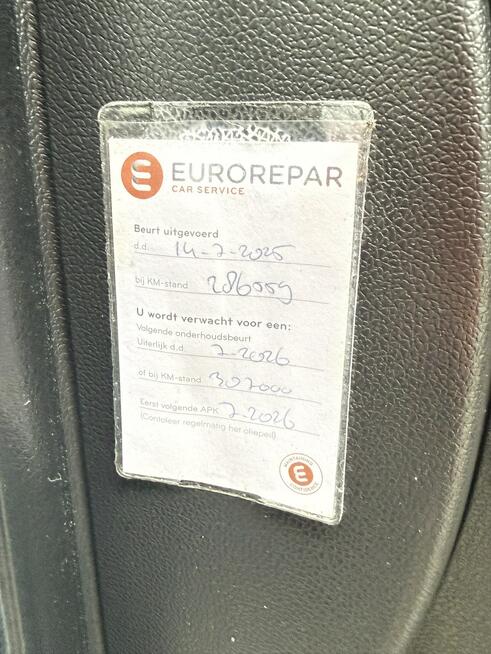 EUROREPAR
CAR SERVICE
Beurt uitgevoerd
d.d. 14-7-2025
bij KM-stand 286559
U wordt verwacht voor een:
Volgende onderhoudsbeurt
Uiterlijk d.d. 7-2026
of bij KM-stand 307000
Eerst volgende APK 7-2026
(Contoleer regelmatig het oliepeil)
MAINTAINING
CONFIDENCE